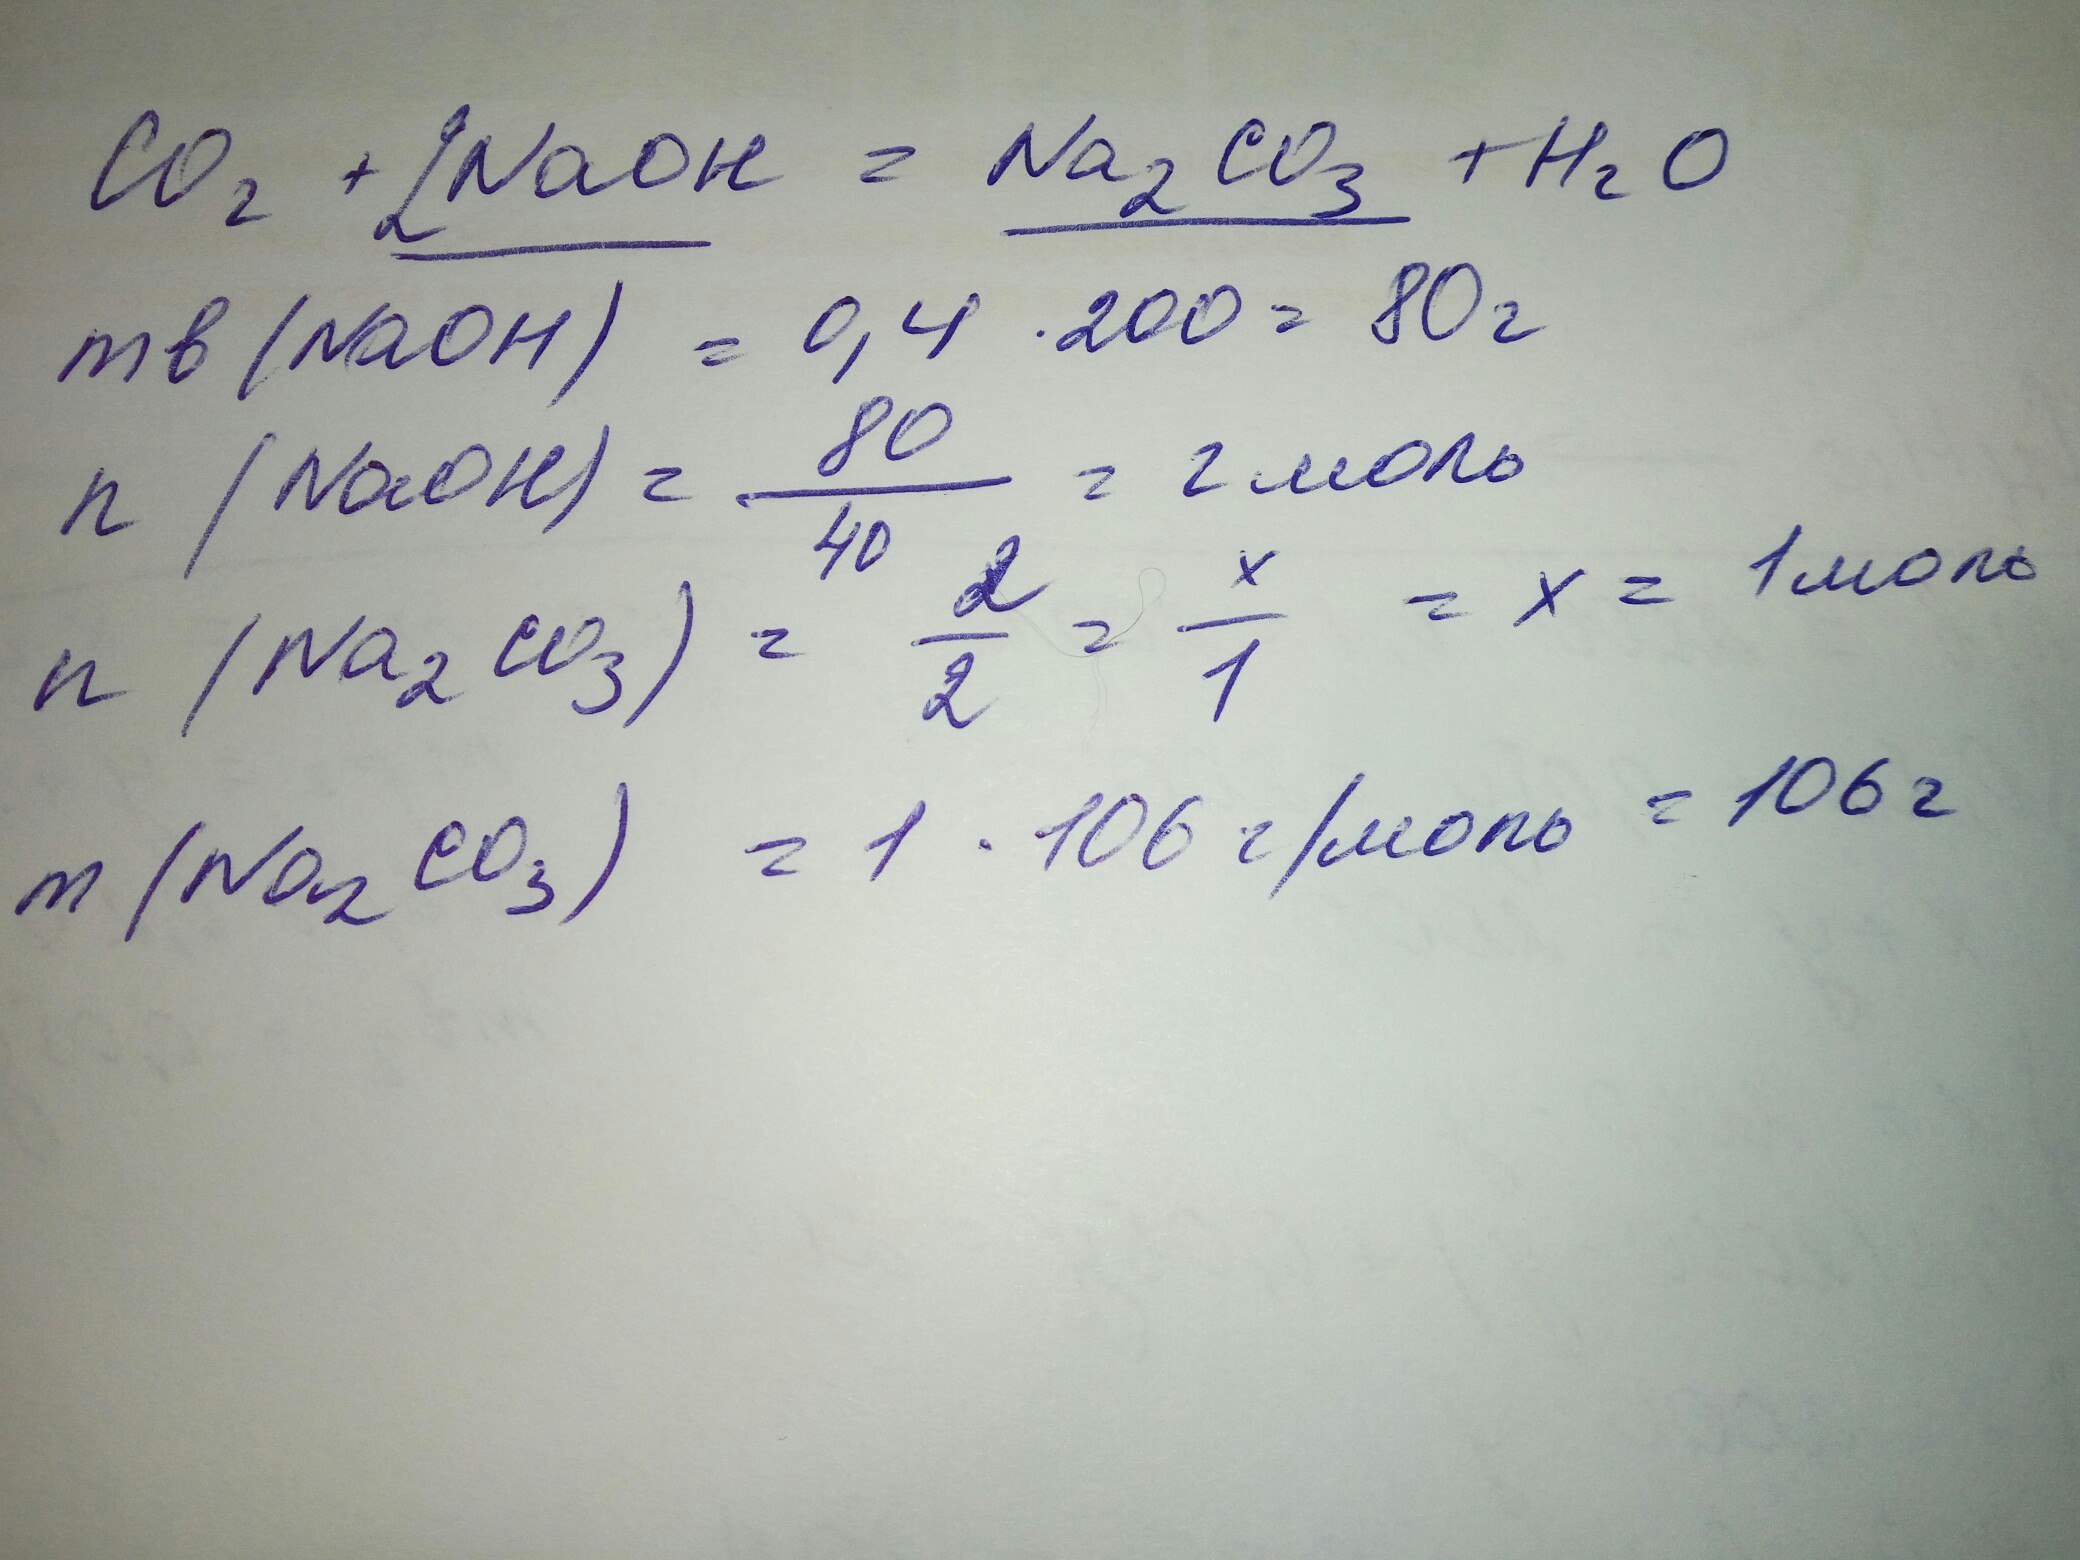 CO₂ + 2NaOH = Na₂CO₃ + H₂O
mв (NaOH) = 0,4 · 200 = 80г
n (NaOH) = 80/40 = 2 моль
n (Na₂CO₃) = 2/2 = x/1 = x = 1 моль
m (Na₂CO₃) = 1 · 106 г/моль = 106 г